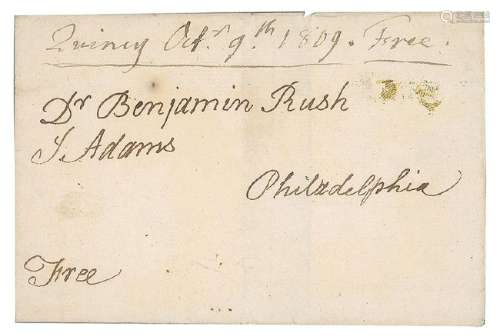 Quincy Octr. 9th. 1809. Free.
Dr Benjamin Rush
J. Adams
Philadelphia
Free